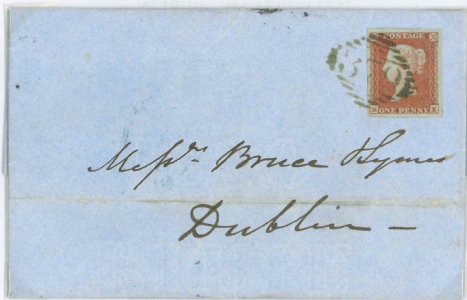 POSTAGE
ONE PENNY
Messrs. Bruce Symes
Dublin —